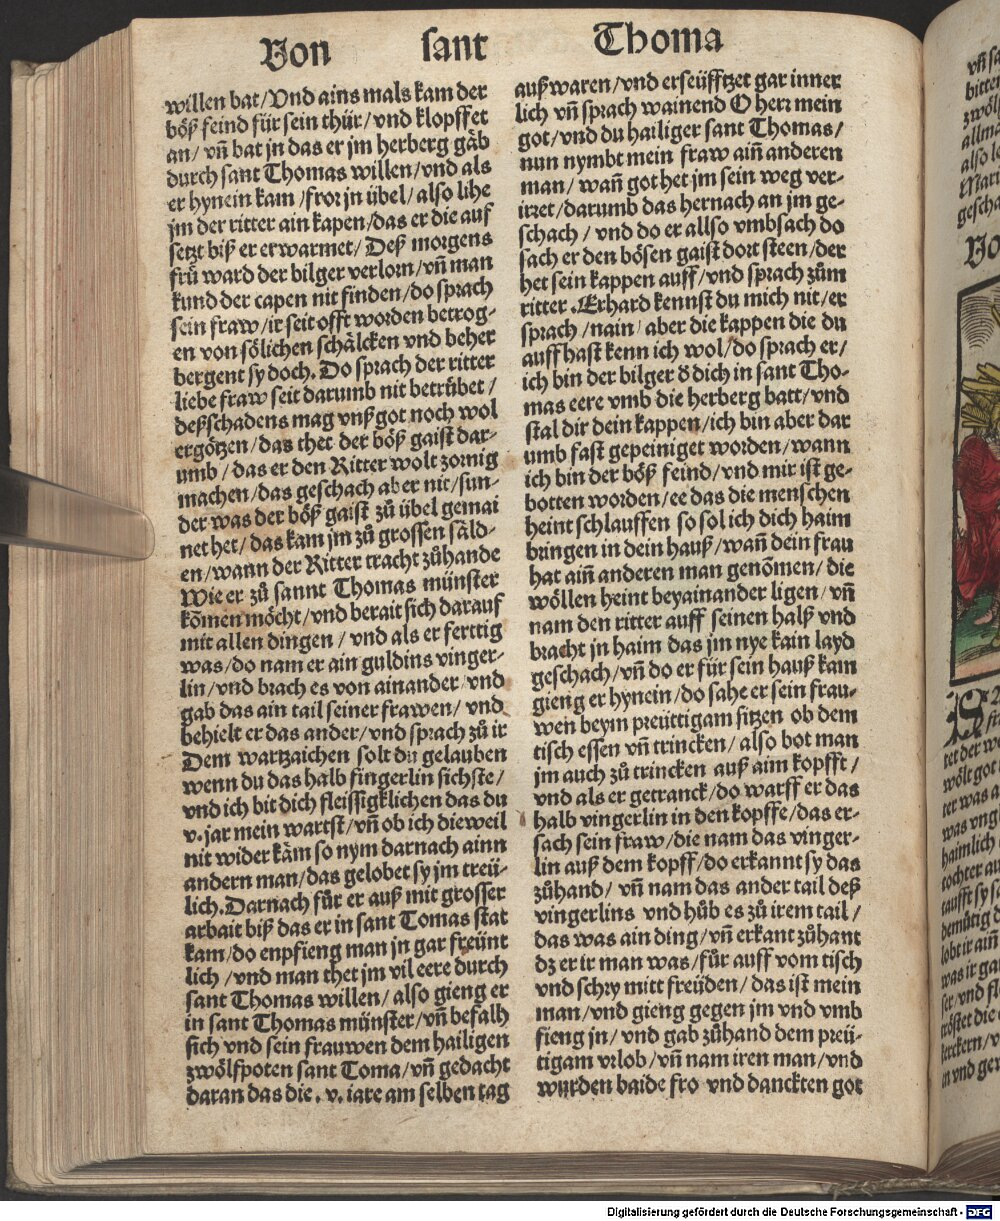 Von sant Thoma
willen bat/Vnd ains mals kam der
böß feind für sein thür/vnd klopffet
an/vñ bat jn das er jm herberg gäb
durch sant Thomas willen/vnd als
er hynein kam/fror jn übel/also lihe
jm der ritter ain kapen/das er die auf
setzt biß er erwarmet/Deß morgens
frů ward der bilger verlorn/vñ man
kund der capen nit finden/do sprach
sein fraw/ir seit offt worden betrog-
en von sölichen schälcken vnd beher
bergent sy doch. Do sprach der ritter
liebe fraw seit darumb nit betrůbet/
deßschadens mag vnß got noch wol
ergötzen/das thet der böß gaist dar-
umb/das er den Ritter wolt zornig
machen/das geschach aber nit/sun-
der was der böß gaist zů übel gemai
net het/das kam jm zů grossen säld-
en/wann der Ritter tracht zůhande
Wie er zů sannt Thomas münster
kõmen möcht/vnd berait sich darauf
mit allen dingen/vnd als er ferttig
was/do nam er ain guldins vinger-
lin/vnd brach es von ainander/vnd
gab das ain tail seiner frawen/vnd
behielt er das ander/vnd sprach zů ir
Dem wartzaichen solt du gelauben
wenn du das halb fingerlin sichste/
vnd ich bit dich fleissigklichen das du
v. jar mein wartst/vñ ob ich dieweil
nit wider käm so nym darnach ainn
andern man/das gelobet sy jm treü-
lich. Darnach für er auß mit grosser
arbait biß das er in sant Tomas stat
kam/do enpfieng man jn gar freünt
lich/vnd man thet jm vil eere durch
sant Thomas willen/also gieng er
in sant Thomas münster/vñ befalh
sich vnd sein frauwen dem hailigen
zwölfpoten sant Toma/vñ gedacht
daran das die .v. iare am selben tag
auß waren/vnd erseüfftzet gar inner
lich vñ sprach wainend O herz mein
got/vnd du hailiger sant Thomas/
nun nymbt mein fraw aiñ anderen
man/wañ got het jm sein weg ver-
irret/darumb das hernach an jm ge-
schach/vnd do er allso vmbsach do
sach er den bösen gaist dort steen/der
het sein kappen auff/vnd sprach zům
ritter. Erhard kennst du mich nit/er
sprach/nain/aber die kappen die du
auff hast kenn ich wol/do sprach er/
ich bin der bilger ð dich in sant Tho-
mas eere vmb die herberg batt/vnd
stal dir dein kappen/ich bin aber dar
umb fast gepeiniget worden/wann
ich bin der böß feind/vnd mir ist ge-
botten worden/ee das die menschen
heint schlauffen so sol ich dich haim
bringen in dein hauß/wañ dein frau
hat aiñ anderen man genõmen/die
wöllen heint beyainander ligen/vñ
nam den ritter auff seinen halß vnd
bracht jn haim das jm nye kain layd
geschach/vñ do er für sein hauß kam
gieng er hynein/do sahe er sein frau-
wen beym preüttigam sitzen ob dem
tisch essen vñ trincken/also bot man
jm auch zů trincken auß aim kopfft/
vnd als er getranck/do warff er das
halb vingerlin in den kopffe/das er-
sach sein fraw/die nam das vinger-
lin auß dem kopff/do erkannt sy das
zůhand/vñ nam das ander tail deß
vingerlins vnd hůb es zů irem tail/
das was ain ding/vñ erkant zůhant
dz er ir man was/für auff vom tisch
vnd schry mitt freüden/das ist mein
man/vnd gieng gegen jm vnd vmb
fieng jn/vnd gab zůhand dem preü-
tigam vrlob/vñ nam iren man/vnd
wurden baide fro vnd danckten got
Digitalisierung gefördert durch die Deutsche Forschungsgemeinschaft - DFG